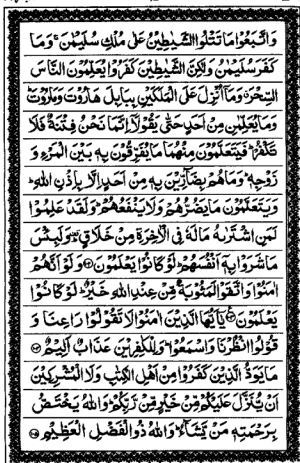 وَاتَّبَعُوْا مَا تَتْلُوا الشَّيٰطِيْنُ عَلٰى مُلْكِ سُلَيْمٰنَ ۚ وَمَا
كَفَرَ سُلَيْمٰنُ وَلٰكِنَّ الشَّيٰطِيْنَ كَفَرُوْا يُعَلِّمُوْنَ النَّاسَ
السِّحْرَ ۤ وَمَاۤ اُنْزِلَ عَلَى الْمَلَكَيْنِ بِبَابِلَ هَارُوْتَ وَمَارُوْتَ ؕ
وَمَا يُعَلِّمٰنِ مِنْ اَحَدٍ حَتّٰى يَقُوْلَاۤ اِنَّمَا نَحْنُ فِتْنَةٌ فَلَا
تَكْفُرْ ؕ فَيَتَعَلَّمُوْنَ مِنْهُمَا مَا يُفَرِّقُوْنَ بِهٖ بَيْنَ الْمَرْءِ وَ
زَوْجِهٖ ؕ وَمَا هُمْ بِضَآرِّيْنَ بِهٖ مِنْ اَحَدٍ اِلَّا بِاِذْنِ اللّٰهِ ؕ
وَيَتَعَلَّمُوْنَ مَا يَضُرُّهُمْ وَلَا يَنْفَعُهُمْ ؕ وَلَقَدْ عَلِمُوْا
لَمَنِ اشْتَرٰىهُ مَا لَهٗ فِى الْاٰخِرَةِ مِنْ خَلَاقٍ ؕ وَلَبِئْسَ
مَا شَرَوْا بِهٖۤ اَنْفُسَهُمْ ؕ لَوْ كَانُوْا يَعْلَمُوْنَ ﴿۱۰۲﴾ وَلَوْ اَنَّهُمْ
اٰمَنُوْا وَاتَّقَوْا لَمَثُوْبَةٌ مِّنْ عِنْدِ اللّٰهِ خَيْرٌ ؕ لَوْ كَانُوْا
يَعْلَمُوْنَ ﴿۱۰۳﴾ يٰۤاَيُّهَا الَّذِيْنَ اٰمَنُوْا لَا تَقُوْلُوْا رَاعِنَا وَ
قُوْلُوا انْظُرْنَا وَاسْمَعُوْا ؕ وَلِلْكٰفِرِيْنَ عَذَابٌ اَلِيْمٌ ﴿۱۰۴﴾
مَا يَوَدُّ الَّذِيْنَ كَفَرُوْا مِنْ اَهْلِ الْكِتٰبِ وَلَا الْمُشْرِكِيْنَ
اَنْ يُّنَزَّلَ عَلَيْكُمْ مِّنْ خَيْرٍ مِّنْ رَّبِّكُمْ ؕ وَاللّٰهُ يَخْتَصُّ
بِرَحْمَتِهٖ مَنْ يَّشَآءُ ؕ وَاللّٰهُ ذُو الْفَضْلِ الْعَظِيْمِ ﴿۱۰۵﴾